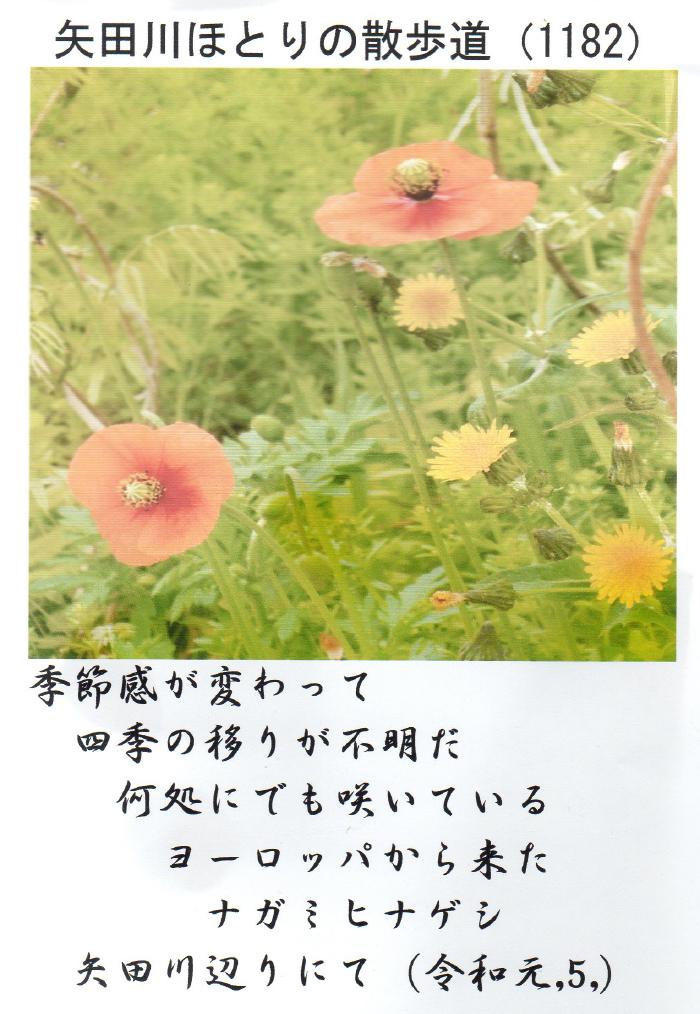 矢田川ほとりの散歩道（1182）
季節感が変わって
四季の移りが不明だ
何処にでも咲いている
ヨーロッパから来た
ナガミヒナゲシ
矢田川辺りにて（令和元,5,）